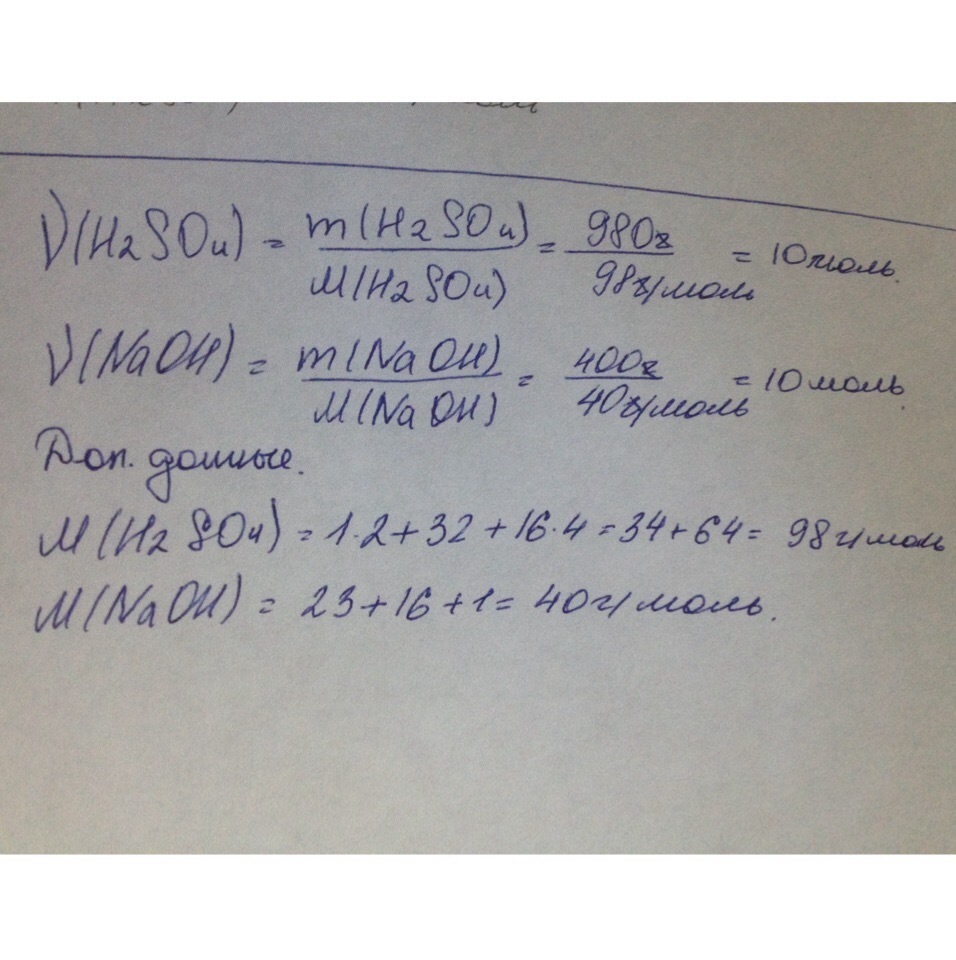 ν(H2SO4) = m(H2SO4)/M(H2SO4) = 980г/98г/моль = 10моль.
ν(NaOH) = m(NaOH)/M(NaOH) = 400г/40г/моль = 10моль.
Доп. данные.
M(H2SO4) = 1·2+32+16·4=34+64= 98г/моль
M(NaOH) = 23+16+1= 40г/моль.